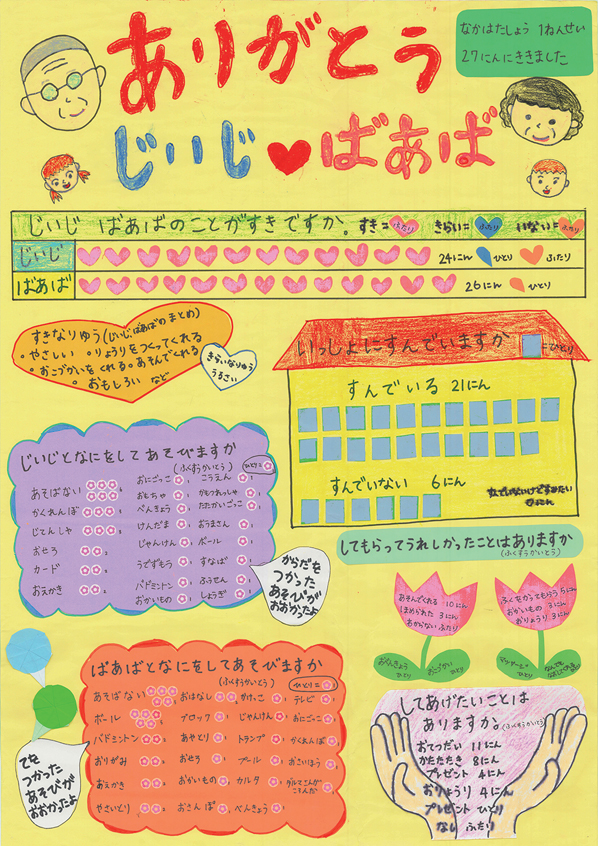 ありがとう
なかはたしょう 1ねんせい
27にんにききました
じいじ ばあば
じいじ ばあばのことがすきですか。 すき= ふたり きらい= ふたり いない= ふたり
じいじ 24にん ひとり ふたり
ばあば 26にん ひとり
すきなりゆう(じいじ、ばあばの まとめ)
・やさしい ・りょうりをつくってくれる
・おこづかいをくれる。あそんでくれる
・おもしろい など
きらいなりゆう
うるさい
いっしょにすんでいますか =ひとり
すんでいる 21にん
すんでいない 6にん
じいじとなにをしてあそびますか
(ふくすうかいとう) ひとり=
あそばない 6
かくれんぼ
じてんしゃ
おせろ
カード
おえかき
おにごっこ
おもちゃ
べんきょう
けんだま
じゃんけん
うでずもう
バドミントン
おかいもの
こうえん
かもつれっしゃ
たたかいごっこ
おうまさん
ボール
すなば
ふうせん
しょうぎ
からだを
つかった
あそびが
おおかったよ
してもらってうれしかったことはありますか
(ふくすうかいとう)
あそんでくれる 10にん
ほめられた 3にん
わからない ふたり
おべんきょう
ひとり
おこづかい
ひとり
ふくをかってもらう 5にん
おかいもの 3にん
おりょうり 3にん
マッサージ
ひとり
ばあばとなにをしてあそびますか
(ふくすうかいとう) ひとり=
あそばない
ボール
バドミントン
おりがみ
おえかき
やさいとり
おはなし
ブロック
あやとり
おせろ
おかいもの
おさんぽ
かけっこ
じゃんけん
トランプ
プール
カルタ
べんきょう
テレビ
おにごっこ
かくれんぼ
おさいほう
てを
つかった
あそびが
おおかったよ
してあげたいことは
ありますか。(ふくすうかいとう)
おてつだい 11にん
かたたたき 8にん
プレゼント 4にん
おりょうり 4にん
プレゼント ひとり
なし ふたり